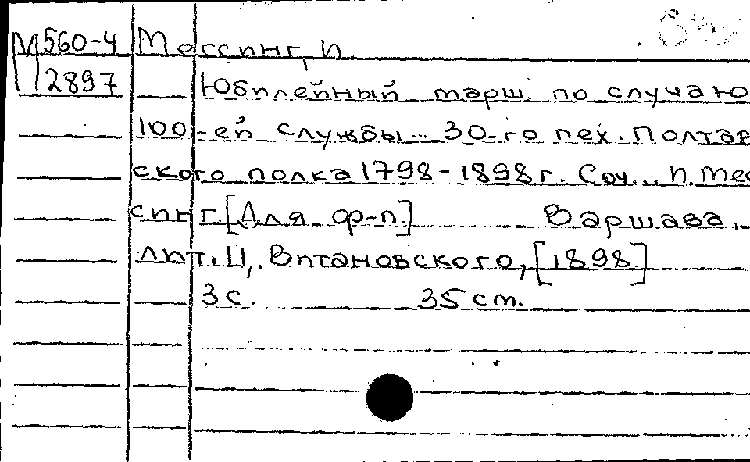 М 560-4 Мессинг, П.
2897 Юбилейный марш по случаю
100-ей службы... 30-го пех. Полтав
ского полка 1798-1898 г. Соч... П. Мес
синг. [Для ф-п.] Варшава,
лит. Ц. Витановского, [1898]
3 с. 35 см.